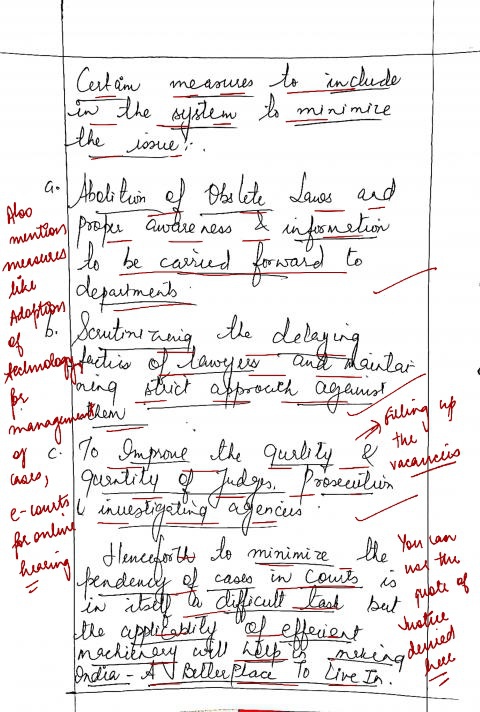 Certain measures to include
in the system to minimize
the issue :.
a. Abolition of Obslete Laws and
proper awareness & information
to be carried forward to
departments.
b. Scrutinizing the delaying
tactics of lawyers and maintai
ning strict approach against
them
c. To Improve the quality &
quantity of Judges, Prosecution
& investigating agencies.
Henceforth to minimize the
pendency of cases in Courts is
in itself a difficult task but
the applicability of efficient
machinery will help in making
India - A Better Place To Live In.
Also
mention
measures
like
Adoption
of
technology
for
management
of
cases,
e-courts
for online
hearing
Filling up
the
vacancies
You can
use the
quote of
Justice
denied
here